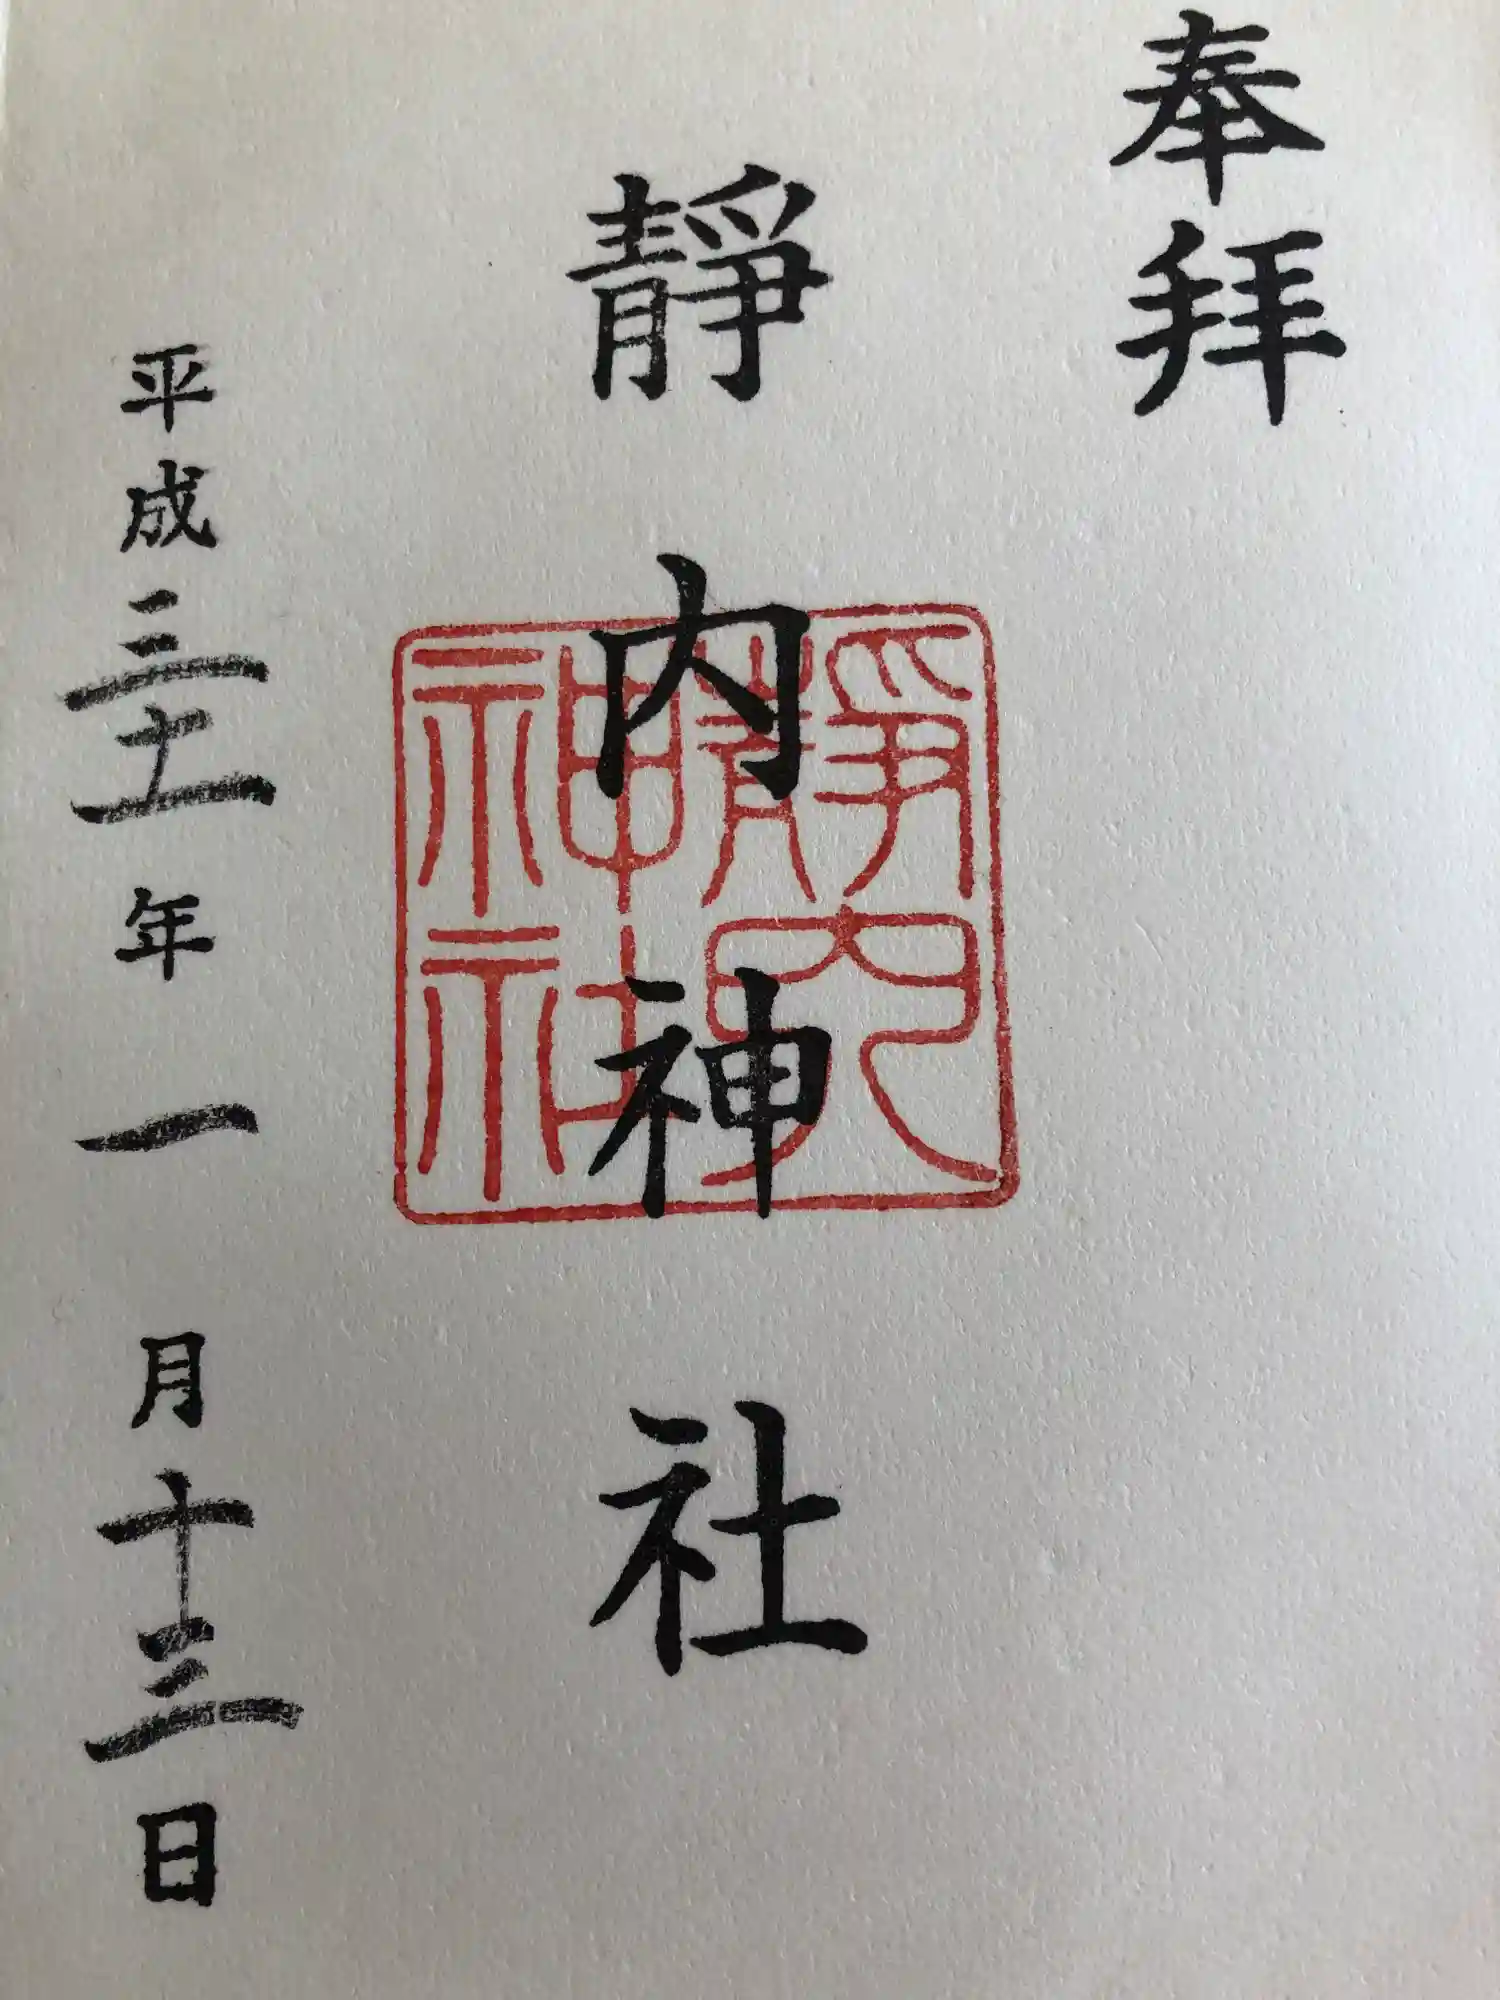 奉拜
靜内神社
靜内神社
平成三十一年一月十三日